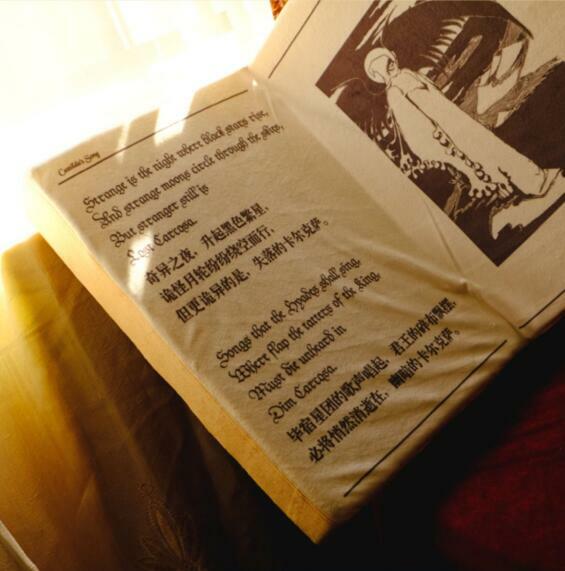 Cassilda's Song
Strange is the night where black stars rise,
And strange moons circle through the skies,
But stranger still is
Lost Carcosa.
奇异之夜，升起黑色繁星，
诡怪月轮纷纷绕空而行，
但更诡异的是，失落的卡尔克萨。
Songs that the Hyades shall sing,
Where flap the tatters of the King,
Must die unheard in
Dim Carcosa.
毕宿星团的歌声唱起，君王的碎布飘摆，
必将悄然消逝在，幽暗的卡尔克萨。